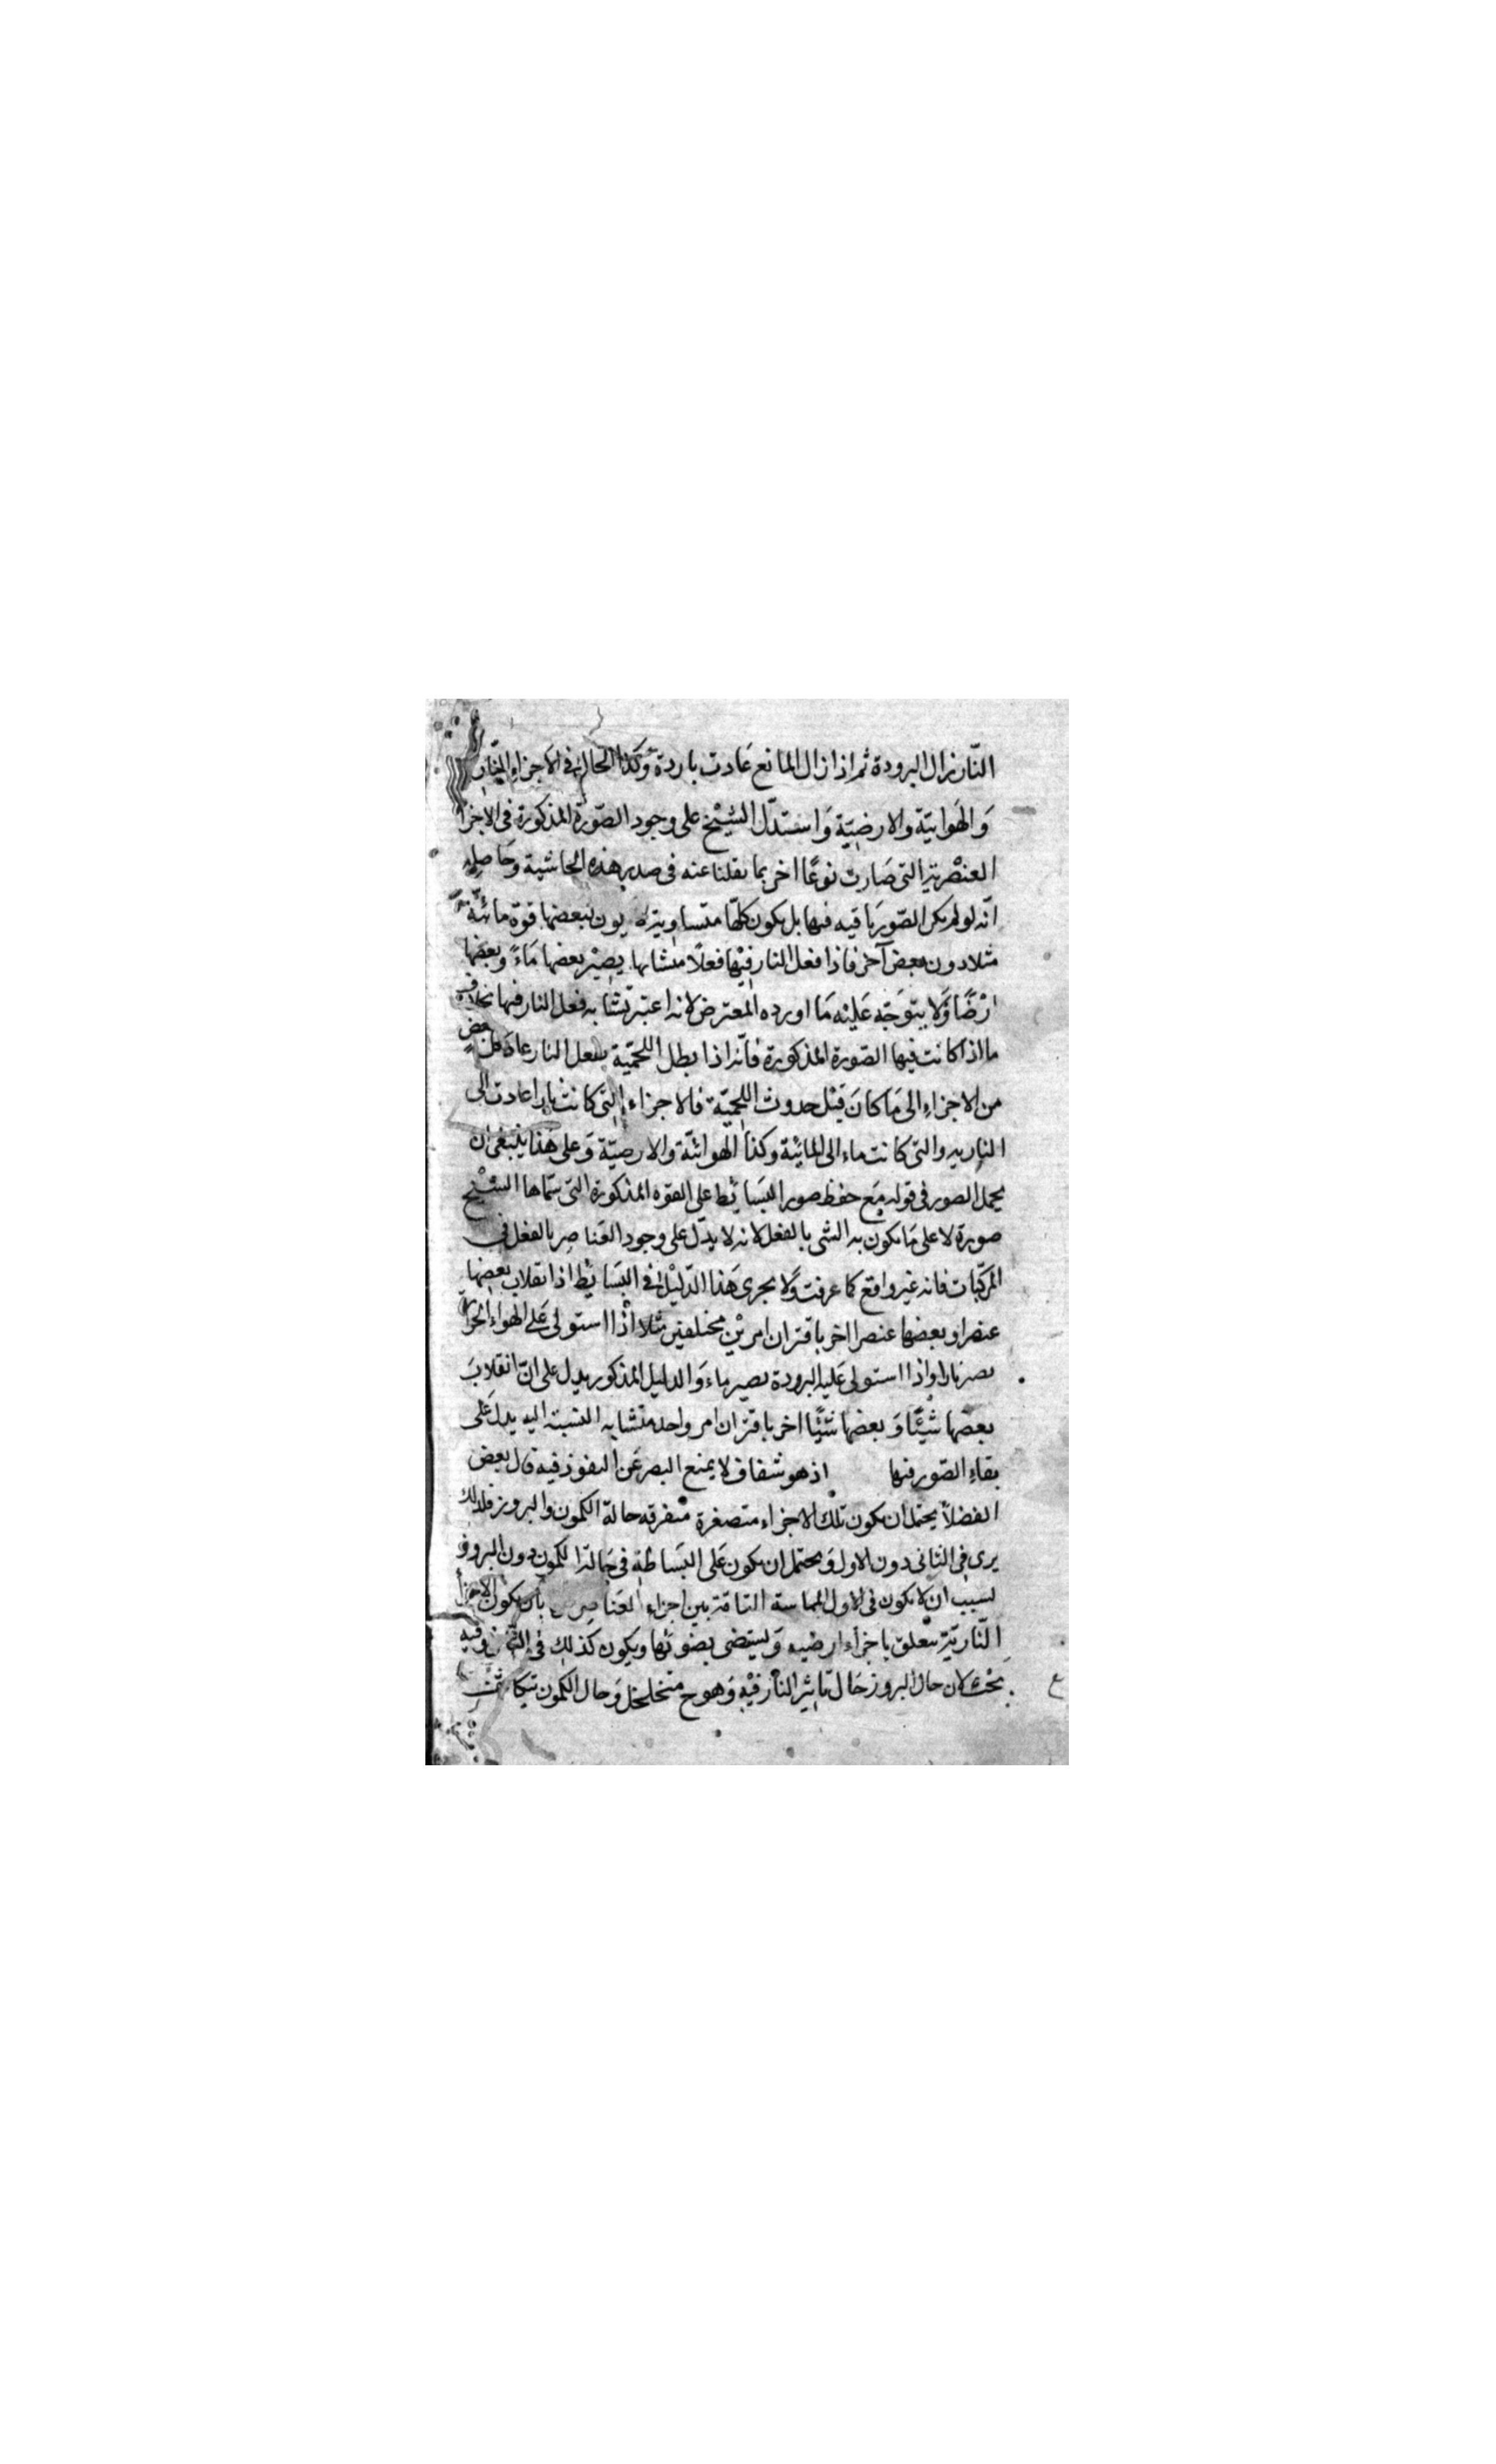 النّار زال البرودة ثم اذا زال المانع عَادت باردة وكذا الحال فى الاجزاءِ النّارية
وَالهَوائيّة والارضيّة وَاستدّل الشيْخ على وجود الصّورة المذكورة فى الاجزا
العنْصرية التى صَارت نوعًا اخر بما نقلنا عنه فى صدر هذه الحاشية وحَاصله
انّه لو لم يكن الصّور بَاقيه فيها بل يكون كلّها متساوية يكون لبعضها قوة مائيّة
مثلا دون بعض آخر فاذا فعل النار فيْها فعلاً متشابها يصيْر بعضها مَاءً وبعضها
ارْضًا وَلا يتوَجّه عَليْه مَا اورده المعترض لانه اعتبر تشَابه فعل النار فيها بخلاف
ما اذا كانت فيها الصّورة المذكورة فانّه اذا بطل اللحميّة بفعل النار عَاد كل بعض
من الاجزاءِ الى مَا كانَ قبْل حدوث اللحميّة فالاجزاء التى كانت نارا عادت الى
الناريه والتى كانت ماء الى المائيّة وكذا الهوائيّة والارضيّة وَعلى هَذا ينبغى ان
يحمل الصور فى قوله مَع حفظ صور البَسائط على القوه المذكورة التى سمّاها الشيْخ
صورة لا على مَا يكون به الشى بالفعل لانه لا يدّل على وجود العَناصِر بالفعل فى
المركّبات فانه غير واقع كما عرفت وَلا يجرى هَذا الدّليْل فى البَسائط اذا نقلاب بعضها
عنصرا وبعضها عنصرا اخر باقتران امريْن مختلفين مثلا اذا استولى عَلى الهواء الحرارة
يصير نارا واذا استولى عَليه البرودة يصير ماء وَالدليل المذكور يدل على انّ انقلابَ
بعضها شيْئًا وَبعضها شيْئًا اخر باقتران امر واحد متشابه النسبة اليه يدل عَلى
بقاءِ الصّور فيها اذ هو شفاف لا يمنع البصر عَن النفوذ فيه قال بعض
الفضلاَ يحتمل ان يكون تلْك الاجزاء متصغرة متفرقه حالة الكمون والبروز فلذلك
يرى فى الثانى دون الاول وَيحتمل ان يكون عَلى البَساطة فى حَالة الكمون دون البروز
لسبب ان لا يكون فى الاول المماسة التامة بين اجزاءِ العَناصِر بأن يكون الاجزأ
النّاريّة يتعلق باجزأء ارضيه وَيستضى بضوئها ويكون كذلك فى الثانى وفيه
بحْث لان حال البروز حَال تاثير النّار فيْه وَهو ح متخلخل وَحال الكمون